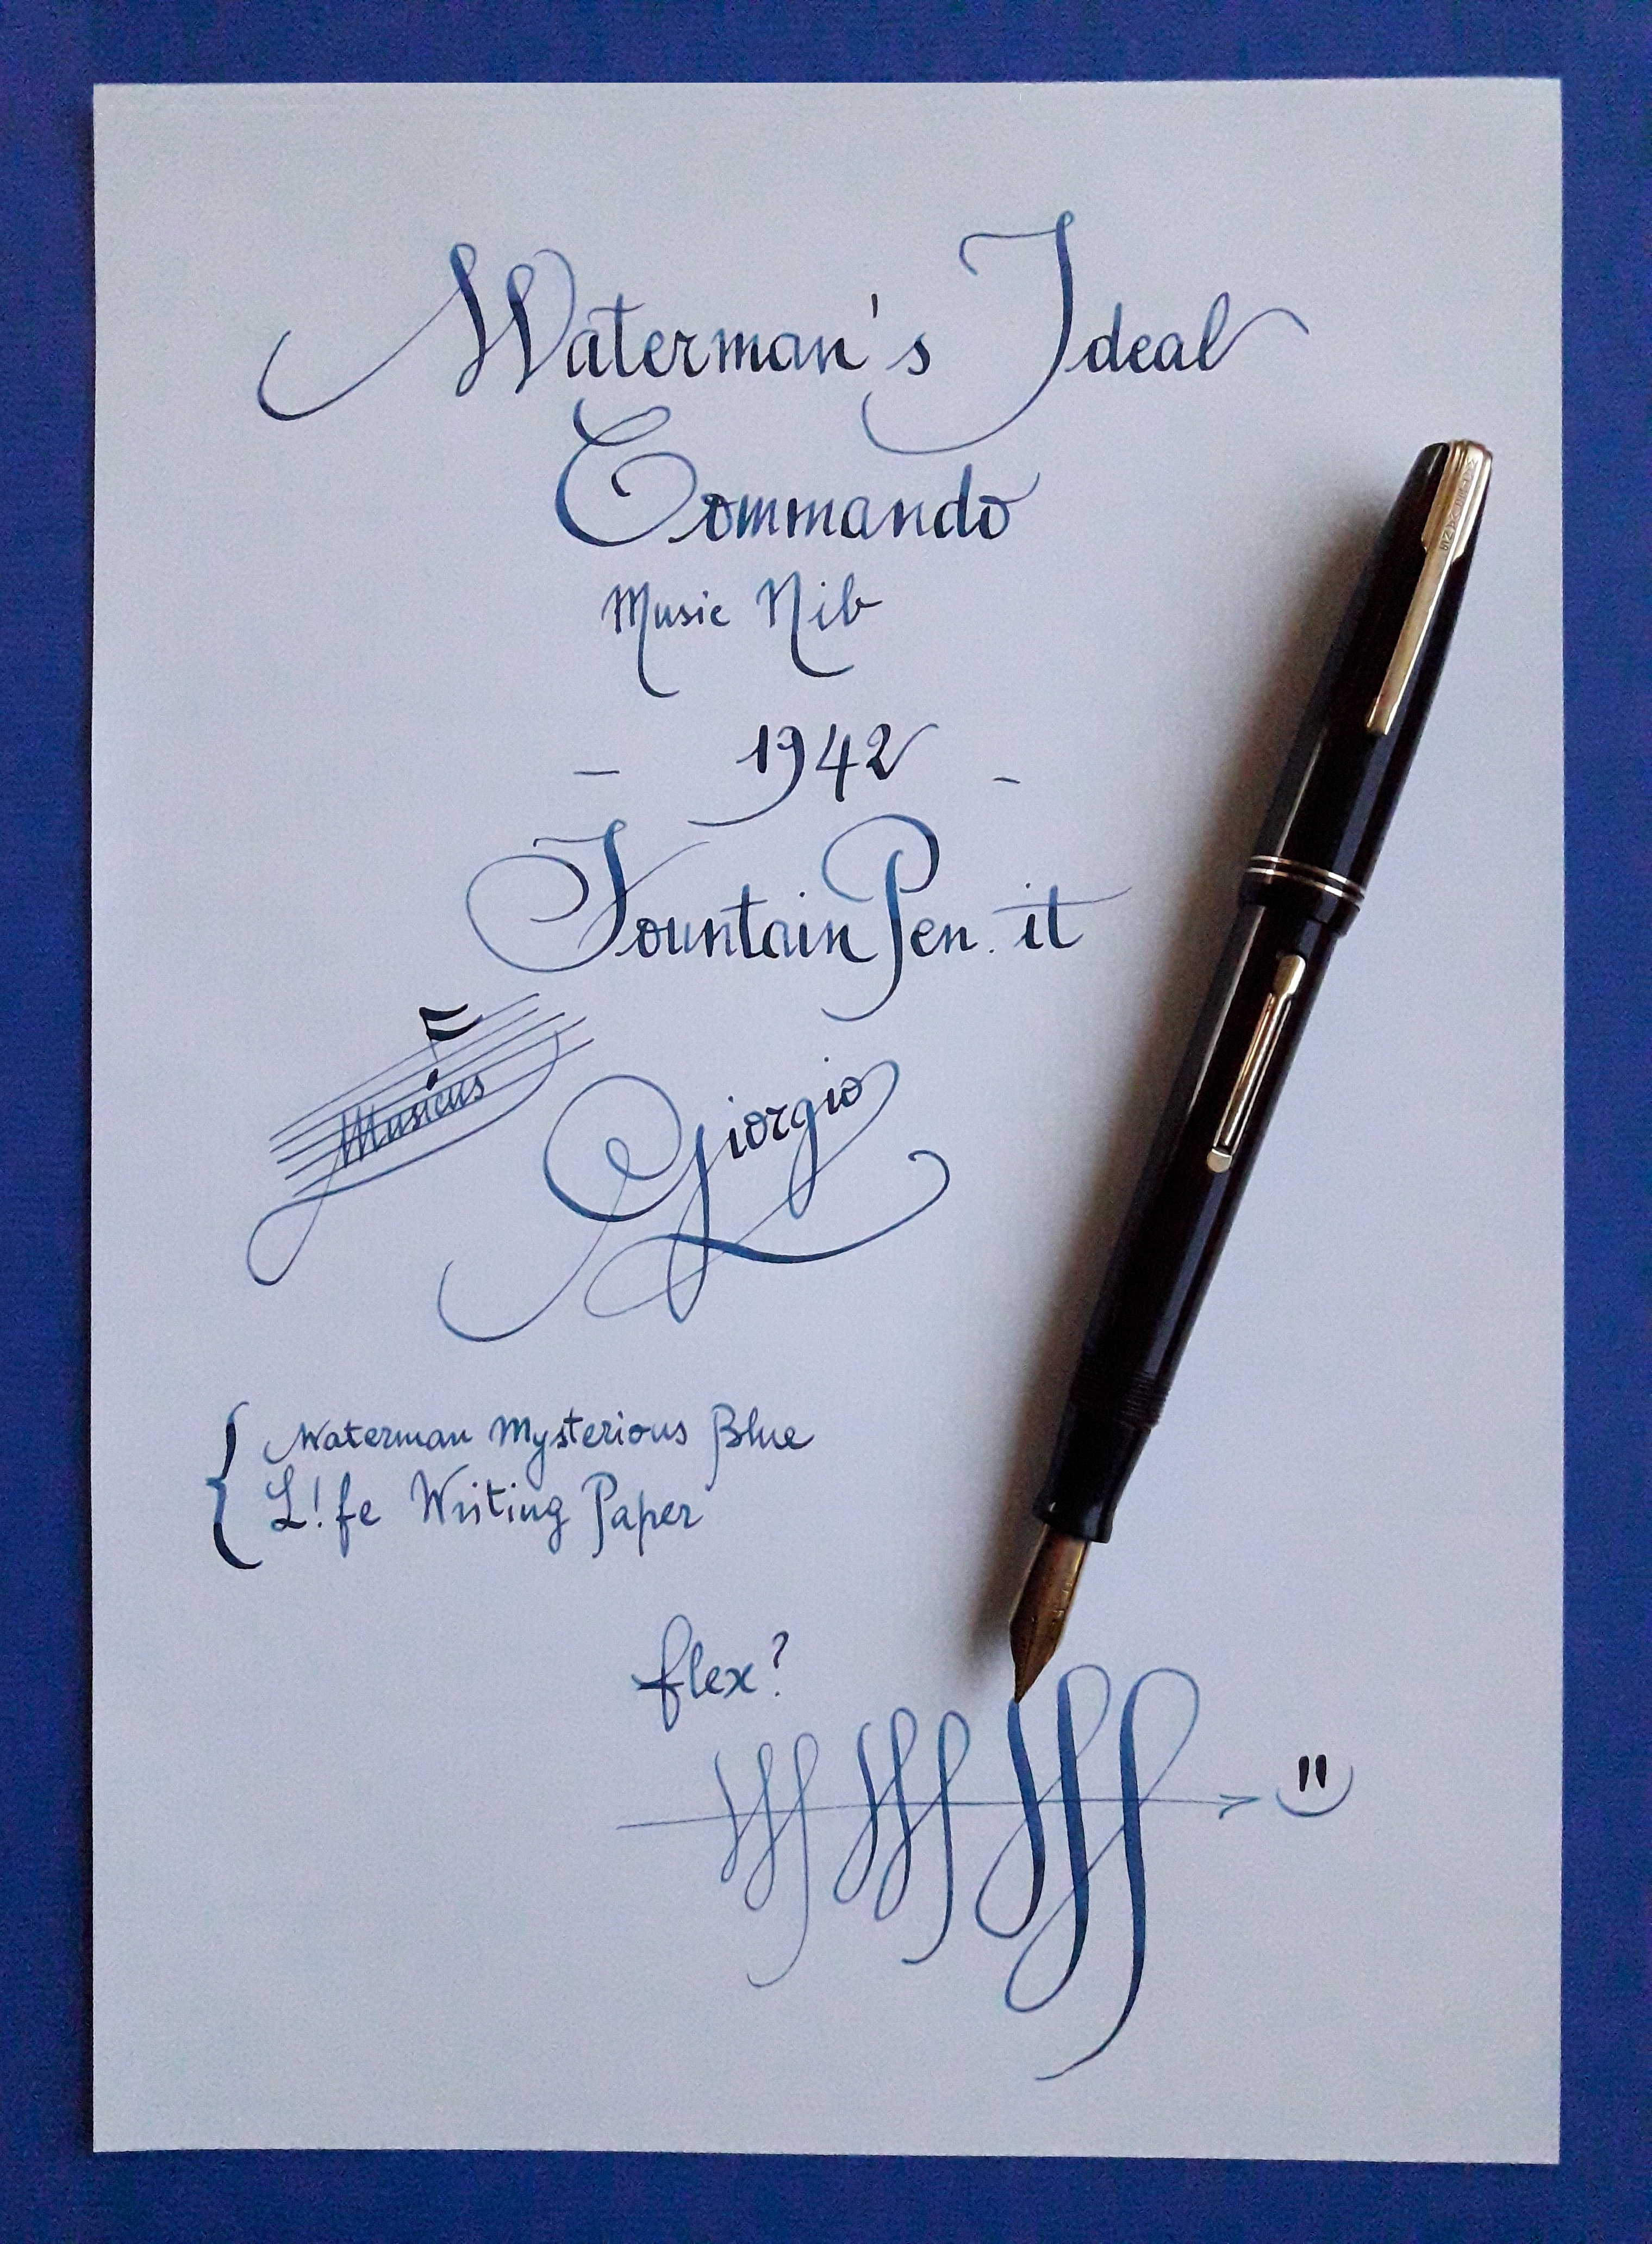 Waterman's Ideal
Commando
Music Nib
- 1942 -
FountainPen.it
Musicus
Giorgio
Waterman Mysterious Blue
L!fe Writing Paper
flex?
fff fff fff
WATERMANS